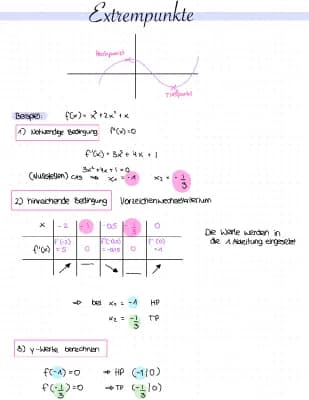 Extrempunkte
Hochpunkt
Tiefpunkt
Beispiel: f(x) = x³+2x²+x
1) Notwendige Bedingung f'(x)=0
f'(x) = 3x² + 4x + 1
3x²+4x+1=0
(Nullstellen) CAS ⇒ x₁ = -1 x₂ = -1/3
2) hinreichende Bedingung Vorzeichenwechselkriterium
x -2 -1 -0,5 -1/3 0
f'(x) f'(-2) = 5 0 0 f'(0)
Die Werte werden in
die 1. Ableitung eingesetzt
⇒ bei x₁ = -1 HP
x₂ = -1/3 TP
3) y-Werte berechnen
f(-1) = 0 ⇒ HP (-1|0)
f(-1/3) = 0 ⇒ TP (-1/3|0)